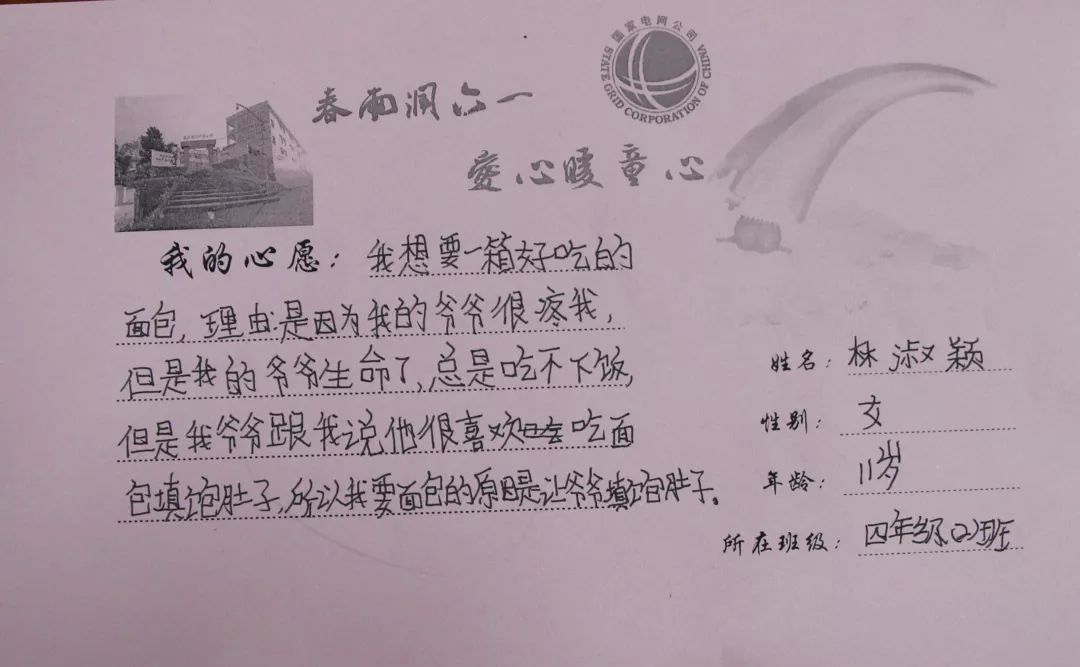 国家电网公司
STATE GRID CORPORATION OF CHINA
春雨润六一
爱心暖童心
我的心愿：我想要一箱好吃的
面包，理由是因为我的爷爷很疼我，
但是我的爷爷生命了，总是吃不下饭，
但是我爷爷跟我说他很喜欢吃面
包填饱肚子，所以我要面包的原因是让爷爷填饱肚子。
姓名：林淑颖
性别：女
年龄：11岁
所在班级：四年级(2)班